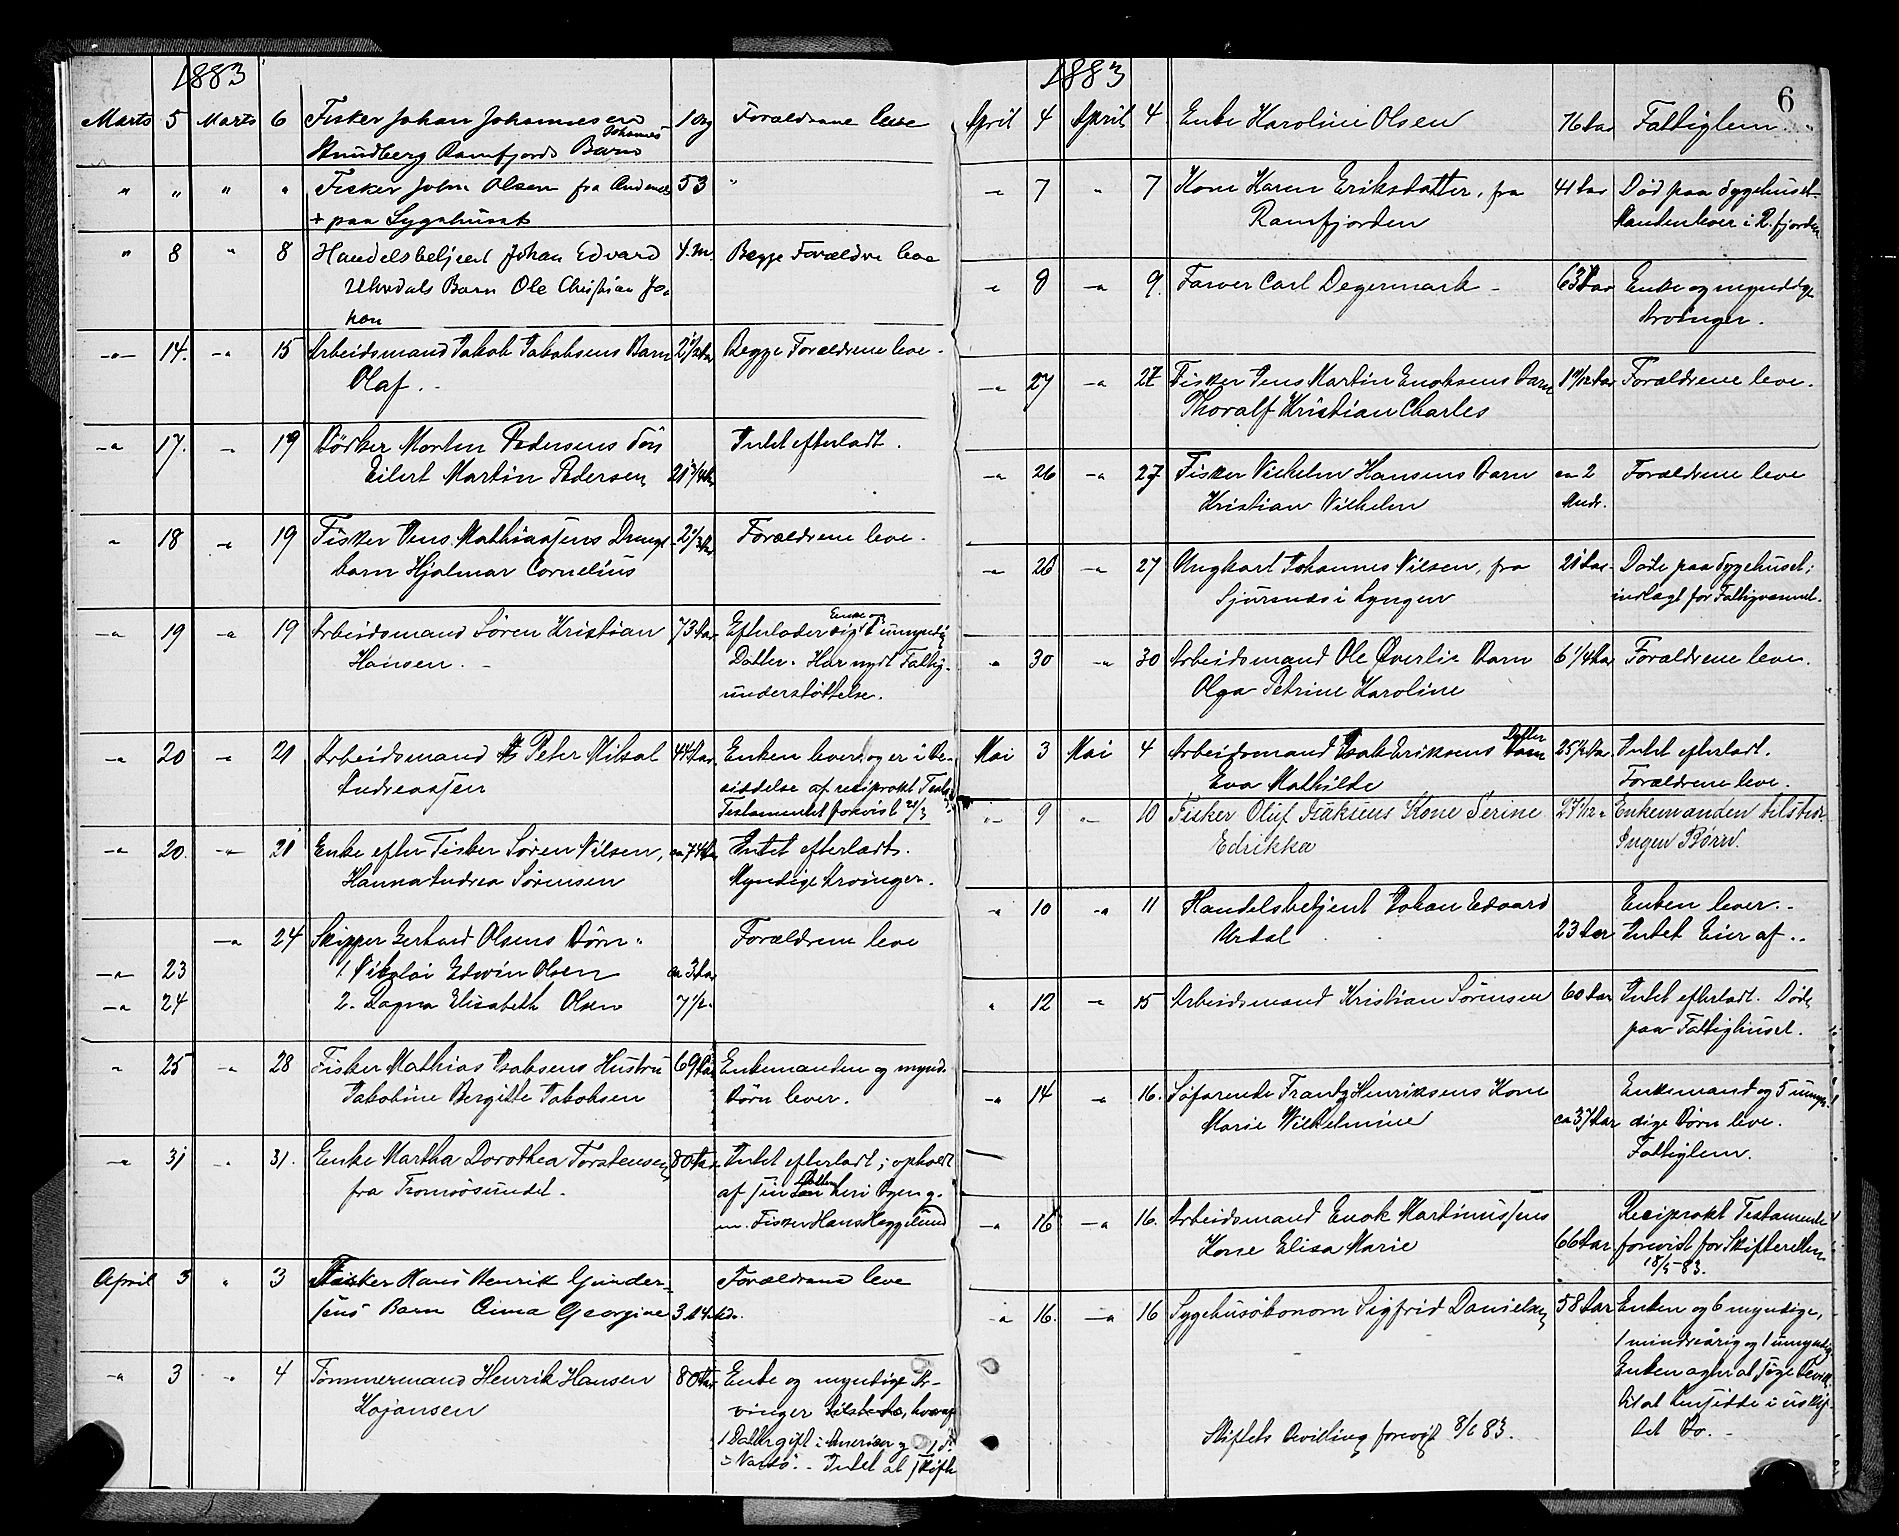 1883
Marts 5 Marts 6 Fisker Johan Johannesen 1 Dag Forældrene leve
Strudberg Ramfjords Johannes Barn
" " " " Fisker John Olsen fra 53 "
+ paa Sygehuset
" 8 " 8 Handelsbetjent Johan Edvard 4. M. Begge Forældre leve
Barn Ole Christian Jo-
han
-"- 14. -" 15 Arbeidsmand Jakob Jakobsens Barn 2 1/2 Aar Begge Forældrene leve.
Olaf.
-" 17. -" 19 Bødker Morten Pedersens Søn Intet efterladt.
Eilert Martin Pedersen 21 3/4 Aar
" 18 -" 19 Fisker Jens Mathiassens Drenge- 2 1/2 Aar Forældrene leve.
barn Hjalmar Cornelius
-" 19 -" 19 Arbeidsmand Søren Kristian 73 Aar Efterlader sig Enke og 1 umyndig
Hansen. Datter. Har nydt Fattig-
understøttelse.
-" 20 -" 21 Arbeidsmand Peter Mikal 44 Aar Enken lever og er i Be-
Andreassen siddelse af reciprokt Test.
Testamentet forevist 21/3
-" 20. -" 21 Enke efter Fisker Søren Nilsen, ca 74 Aar Intet efterladt.
Hanna Andrea Sørensen Myndige Arvinger.
-" 24 Skipper Gerhard Olsens Børn. Forældrene leve
-" 23 1. Nikolai Edwin Olsen ca 3 Aar
-" 24 2. Dagna Elisabeth Olsen 7 1/2 "
" 25 -" 28 Fisker Mathias Jakobsens Hustru 69 Aar Enkemanden og mynd.
Jakobine Bergitte Jakobsen Børn lever.
-" 31 -" 31. Enke Martha Dorothea Torstensen 80 Aar Intet efterladt; opholdt
fra Tromsøsundet. af sin Datter her i Byen g.
m. Fisker Hans Heggelund
April 3 " 3 Fisker Hans Henrik Gunder- Forældrene leve
sens Barn Anna Georgine 3 Mdr.
-" 3 -" 4 Tømmermand Henrik Hansen 80 Aar Enke og myndige Ar-
Kojansen vinger tilstede, hvoraf
1 Datter gift i Amerika og 1 d°
i Vardø. - Intet at skifte
1883
6
April 4 April 4 Enke Karoline Olsen 76 Aar Fattiglem.
-" 7 " 7 Kone Karen Eriksdatter, fra 41 Aar Død paa Sygehuset
Ramfjorden Manden lever i R.fjorden
-" 8 -" 9. Farver Carl Degermark - 63 Aar Enke og myndige
Arvinger.
-" 27 -" 27 Fisker Jens Martin Enoksens Barn Forældrene leve.
Thoralf Kristian Charles
-" 26 -" 27 Fisker Vilhelm Hansens Barn ca 2 Forældrene leve
Kristian Vilhelm Mndr.
-" 26 -" 27 Ungkarl Johannes Nilsen, fra 21 Aar Døde paa Sygehuset;
Sjursnæs i Lyngen indlagt for Fattigvæsenet.
" 30 -" 30 Arbeidsmand Ole Øverlis Barn 6 1/4 Aar Forældrene leve.
Olga Petrine Karoline
Mai 3 Mai 4 Arbeidsmand Isak Eriksens Datter 25 1/2 Aar Intet efterladt.
Eva Mathilde Forældrene leve.
-"- 9 "- 10 Fisker Oluf Isaksens Kone Serine 27 1/12 " Enkemanden tilstede.
Edrikka Ingen Børn.
-" 10 -" 11 Handelsbetjent Johan Edvard Enken lever.
Urdal 23 Aar Intet Eier af.
" 12 -" 15 Arbeidsmand Kristian Sørensen 60 Aar Intet efterladt. Døde
paa Fattighuset.
-" 14 -" 16. Søfarende Frantz Henriksens Kone Enkemand og 5 umyn-
Marie Wilhelmine ca 37 Aar dige Børn leve.
Fattiglem.
-" 16 -" 16. Arbeidsmand Enok Martinussens Reciprokt Testamente
Kone Elisa Marie 66 Aar forevist for Skifteretten
18/5 83.
-" 16. -" 16 Sygehusøkonom Sigfrid Danielsen 58 Aar Enken og 6 myndige,
1 mindreårig og 1 umyndig
Enken agter at søge Bevill.
til at hensidde i uskif-
tet Bo.
Skiftets Bevilling forevist 8/6 83.